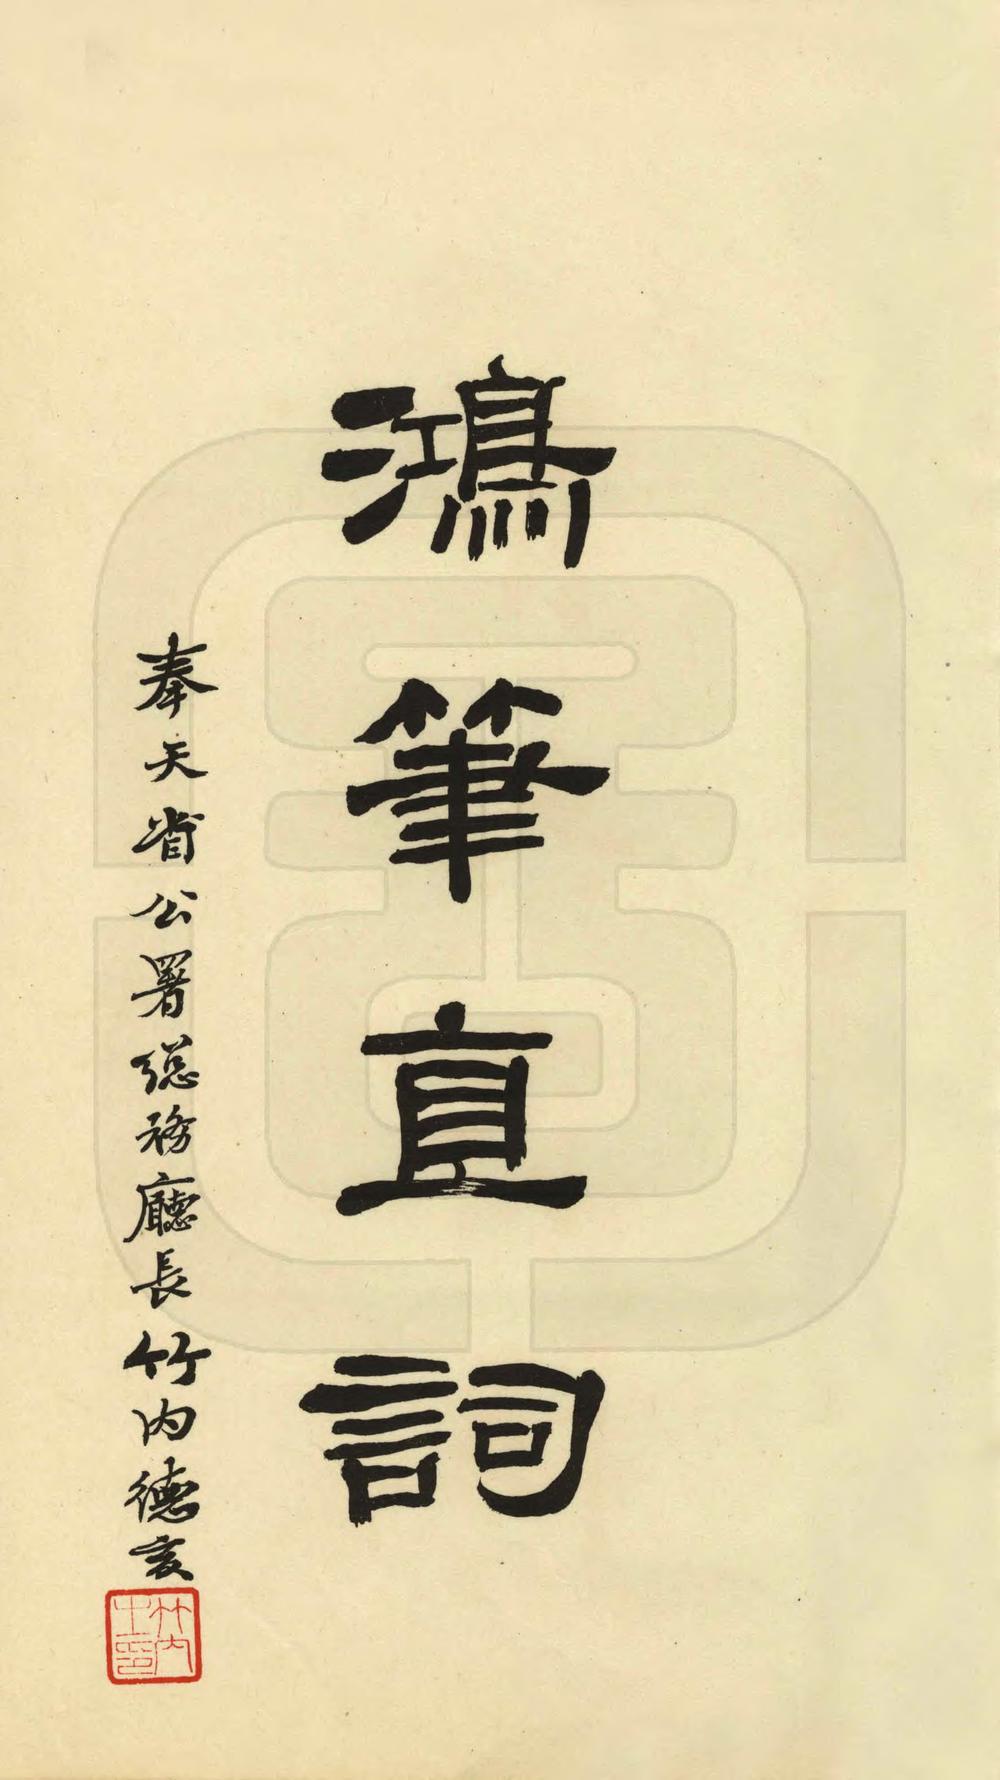 鴻筆直詞
奉天省公署総務廳長竹内德亥
竹内
士印